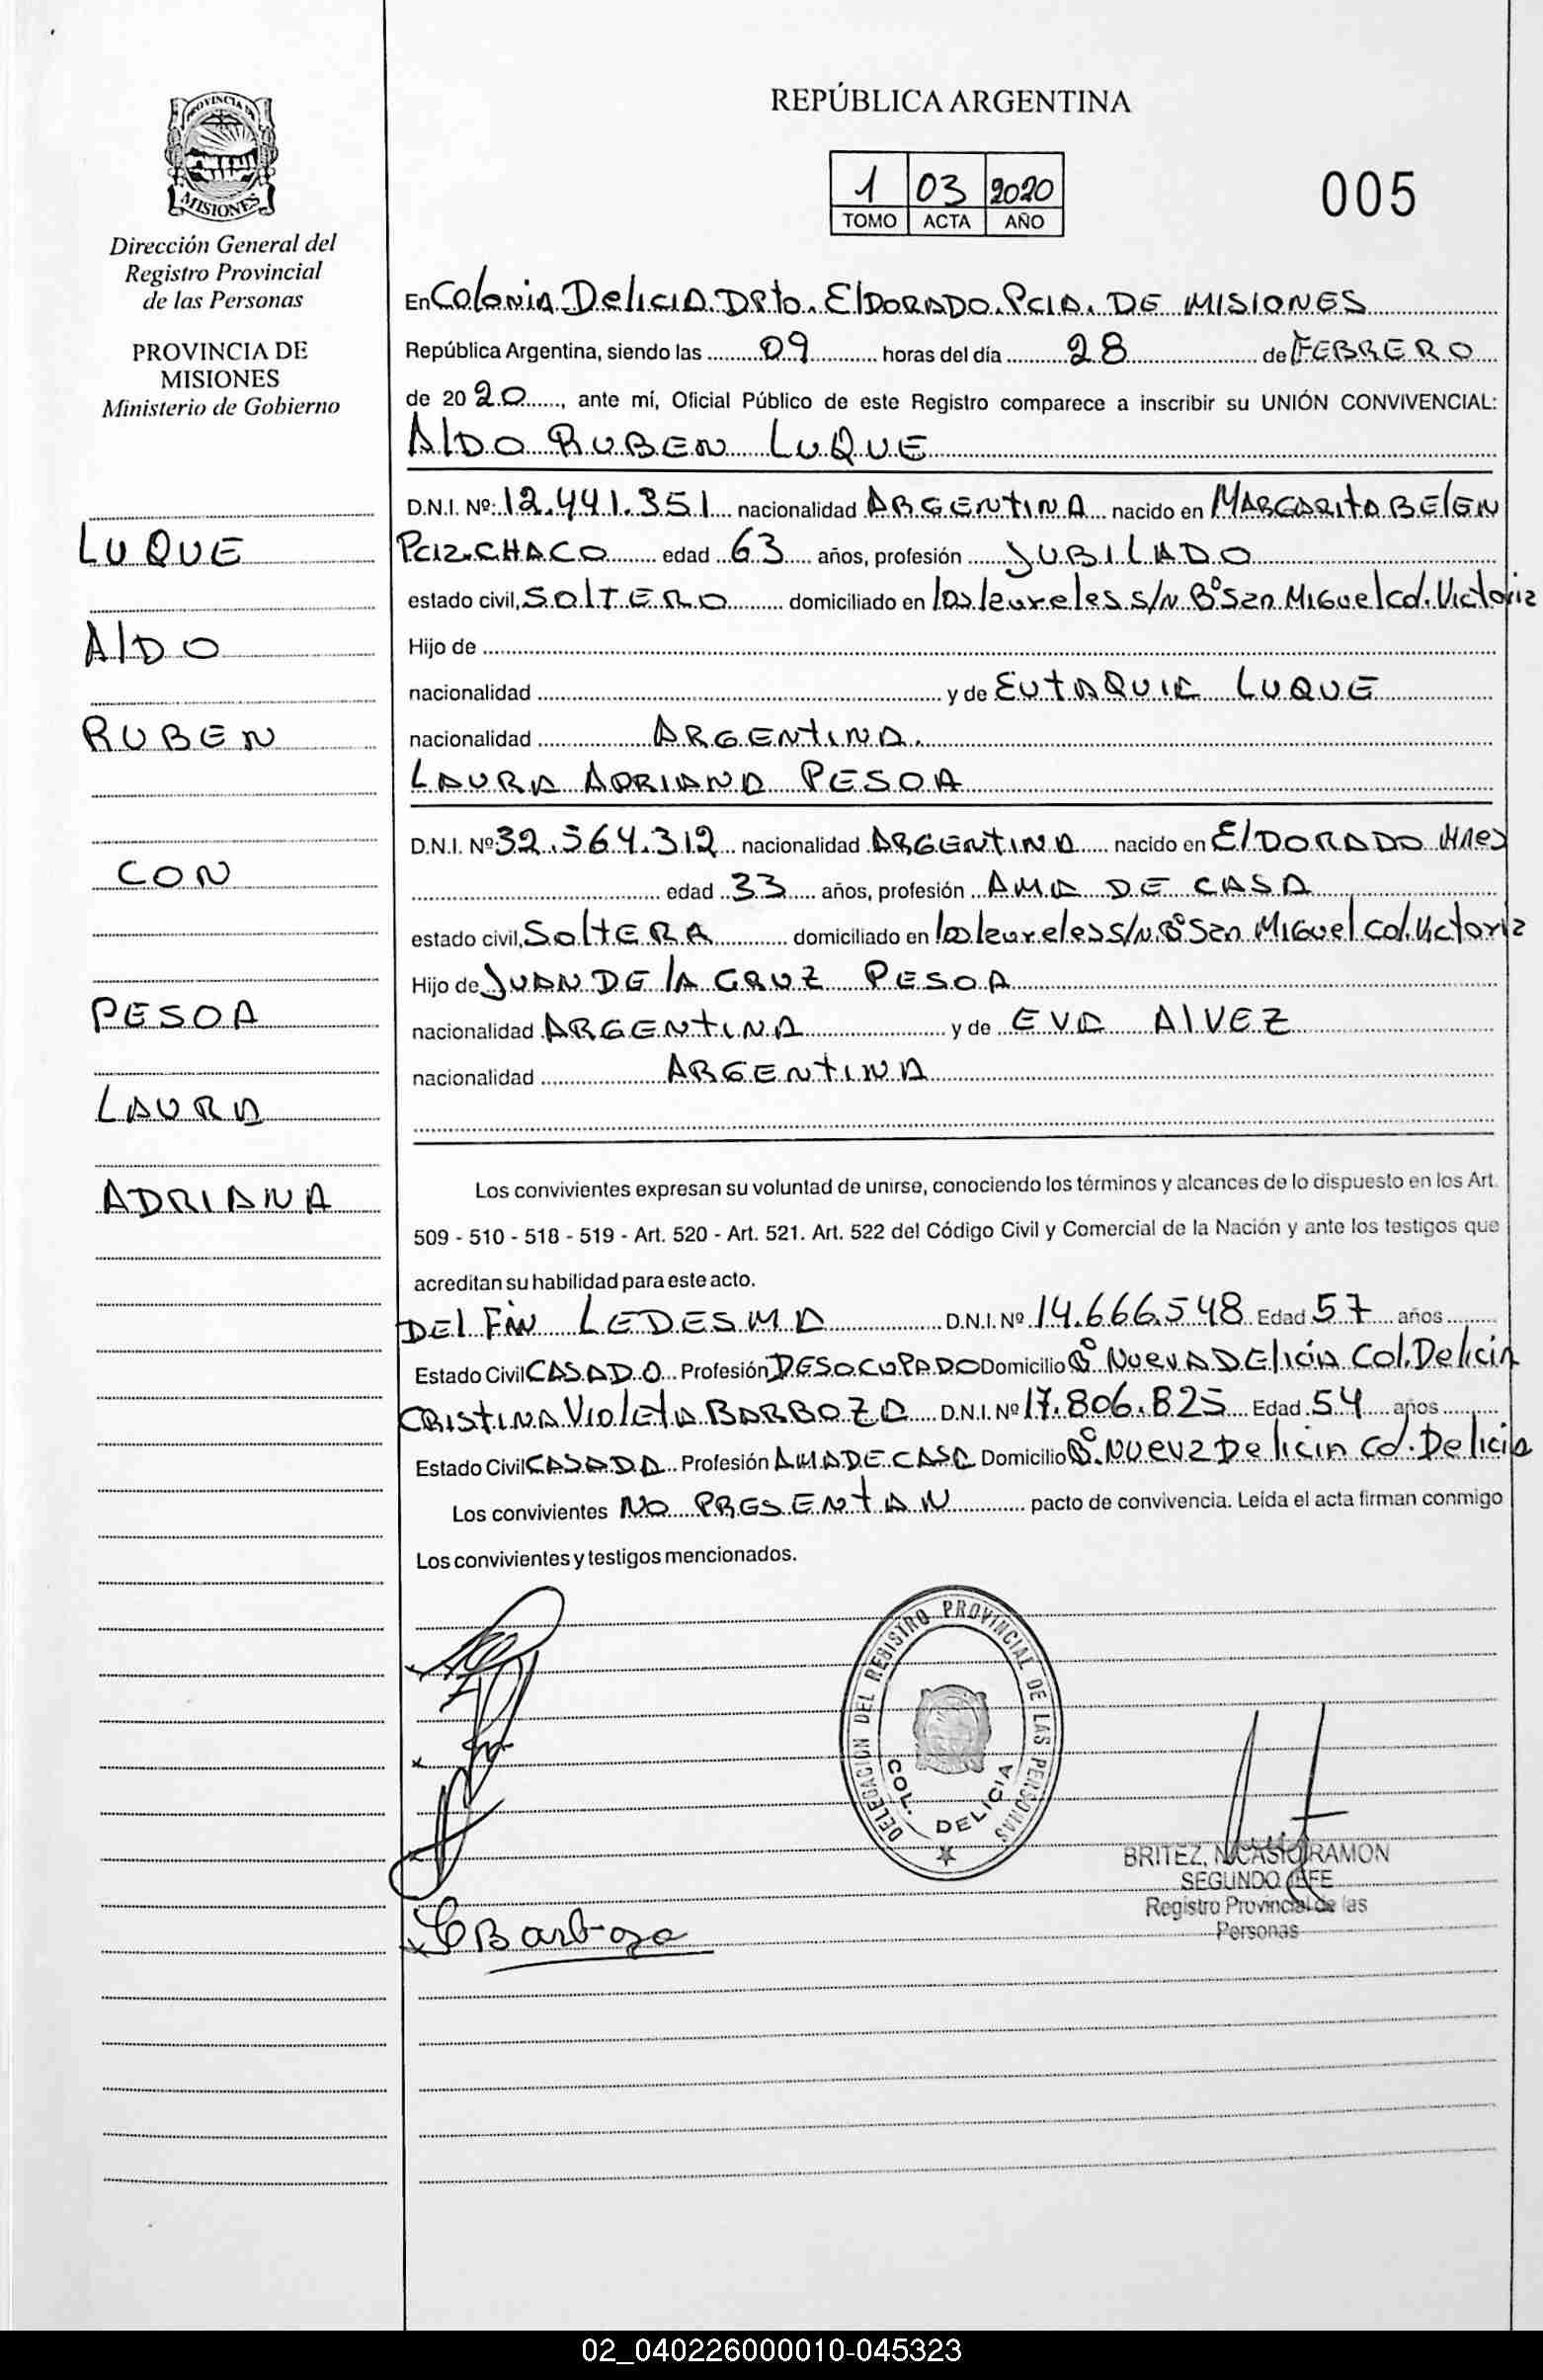 PROVINCIA DE
MISIONES
Dirección General del
Registro Provincial
de las Personas
PROVINCIA DE
MISIONES
Ministerio de Gobierno
LUQUE
AlDO
RUBEN
CON
PESOA
LAURA
ADRIANA
REPÚBLICA ARGENTINA
1 03 2020
TOMO ACTA AÑO
005
En Colonia Delicia Dpto. ElDORADO Pcia. DE MISIONES
República Argentina, siendo las 09 horas del día 28 de FEBRERO
de 20 20, ante mí, Oficial Público de este Registro comparece a inscribir su UNIÓN CONVIVENCIAL:
AlDO RUBEN LUQUE
D.N.I. Nº: 12.441.351 nacionalidad ARGENTINA nacido en MARGARITA BElEN
Pcia. CHACO edad 63 años, profesión JUBILADO
estado civil, SOlTERO domiciliado en los laureles s/N Bº San MIGuel Col. Victoria
Hijo de
nacionalidad y de EUTAQUIA LUQUE
nacionalidad ARGENTINA.
LAURA ADRIANA PESOA
D.N.I. Nº 32.564.312 nacionalidad ARGENTINA nacido en ElDORADO Mnes
edad 33 años, profesión AMA DE CASA
estado civil, SOltERA domiciliado en los laureles s/N. Bº San MIGuel Col. Victoria
Hijo de JUAN DE lA CRUZ PESOA
nacionalidad ARGENTINA y de EVA AlVEZ
nacionalidad ARGENTINA
Los convivientes expresan su voluntad de unirse, conociendo los términos y alcances de lo dispuesto en los Art.
509 - 510 - 518 - 519 - Art. 520 - Art. 521. Art. 522 del Código Civil y Comercial de la Nación y ante los testigos que
acreditan su habilidad para este acto.
DElFIN LEDESMA D.N.I. Nº 14.666.548 Edad 57 años
Estado Civil CASADO Profesión DESOCUPADO Domicilio Bº NUEVA DElicia Col. Delicia
CRISTINA VIOlETA BARBOZA D.N.I. Nº 17.806.825 Edad 54 años
Estado Civil CASADA Profesión AMA DE CASA Domicilio Bº. NUEVA Delicia Col. Delicia
Los convivientes NO PRESENTAN pacto de convivencia. Leída el acta firman conmigo
Los convivientes y testigos mencionados.
DELEGACION DEL REGISTRO PROVINCIAL DE LAS PERSONAS
COL. DELICIA
BRITEZ, NICASIO RAMON
SEGUNDO JEFE
Registro Provincial de las
Personas
CBarboza
02_040226000010-045323